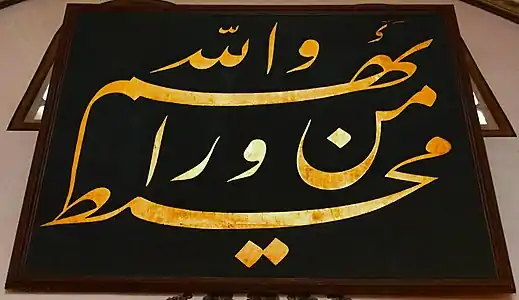 والله من ورائهم محيط